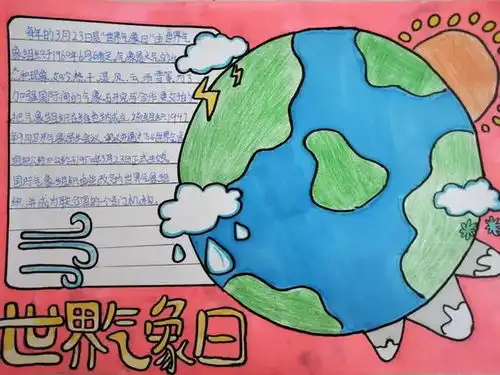 每年的3月23日是“世界气象日”由世界气
象组织于1960年6月确定,气象是大气的状
态和现象,如冷热干湿风云雨雪等,为了
加强国际间的气象
把气象组织在维也纳成立,该组织1947
年9月召开气象局长会议,审议并通过了《世界气象
组织公约》公约于1950年3月23日正式生效,
国际气象组织由此改名为世界气象组
织,并成为联合国的一个专门机构。
世界气象日